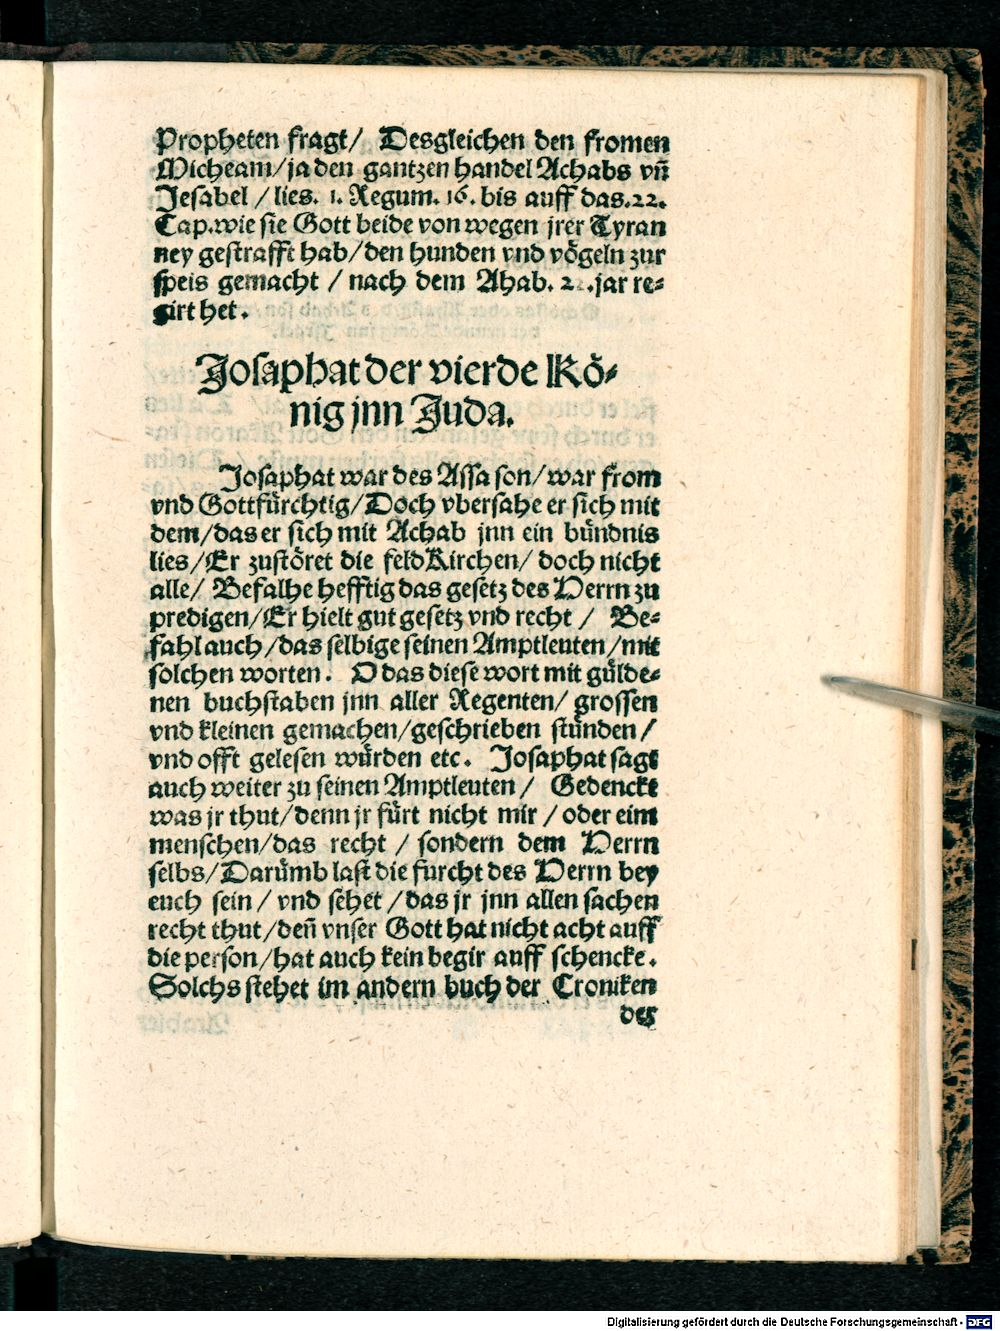 Propheten fragt/ Desgleichen den fromen
Micheam/ja den gantzen handel Achabs vñ
Jesabel/lies. 1. Regum. 16. bis auff das.22.
Cap.wie sie Gott beide von wegen jrer Tyran
ney gestrafft hab/den hunden vnd vögeln zur
speis gemacht / nach dem Ahab. 22.jar re⸗
girt het.
Josaphat der vierde Kö⸗
nig jnn Juda.
Josaphat war des Assa son/war from
vnd Gottfürchtig/Doch vbersahe er sich mit
dem/das er sich mit Achab jnn ein bündnis
lies/Er zustöret die feldKirchen/ doch nicht
alle/ Befalhe hefftig das gesetz des Herrn zu
predigen/Er hielt gut gesetz vnd recht / Be⸗
fahl auch/das selbige seinen Amptleuten/mit
solchen worten. O das diese wort mit gülde⸗
nen buchstaben jnn aller Regenten/ grossen
vnd kleinen gemachen/geschrieben stünden/
vnd offt gelesen würden etc. Josaphat sagt
auch weiter zu seinen Amptleuten/ Gedenckt
was jr thut/denn jr fürt nicht mir / oder eim
menschen/das recht / sondern dem Herrn
selbs/Darümb last die furcht des Herrn bey
euch sein/ vnd sehet /das jr jnn allen sachen
recht thut/deñ vnser Gott hat nicht acht auff
die person/hat auch kein begir auff schencke.
Solchs stehet im andern buch der Croniken
des
Digitalisierung gefördert durch die Deutsche Forschungsgemeinschaft - DFG